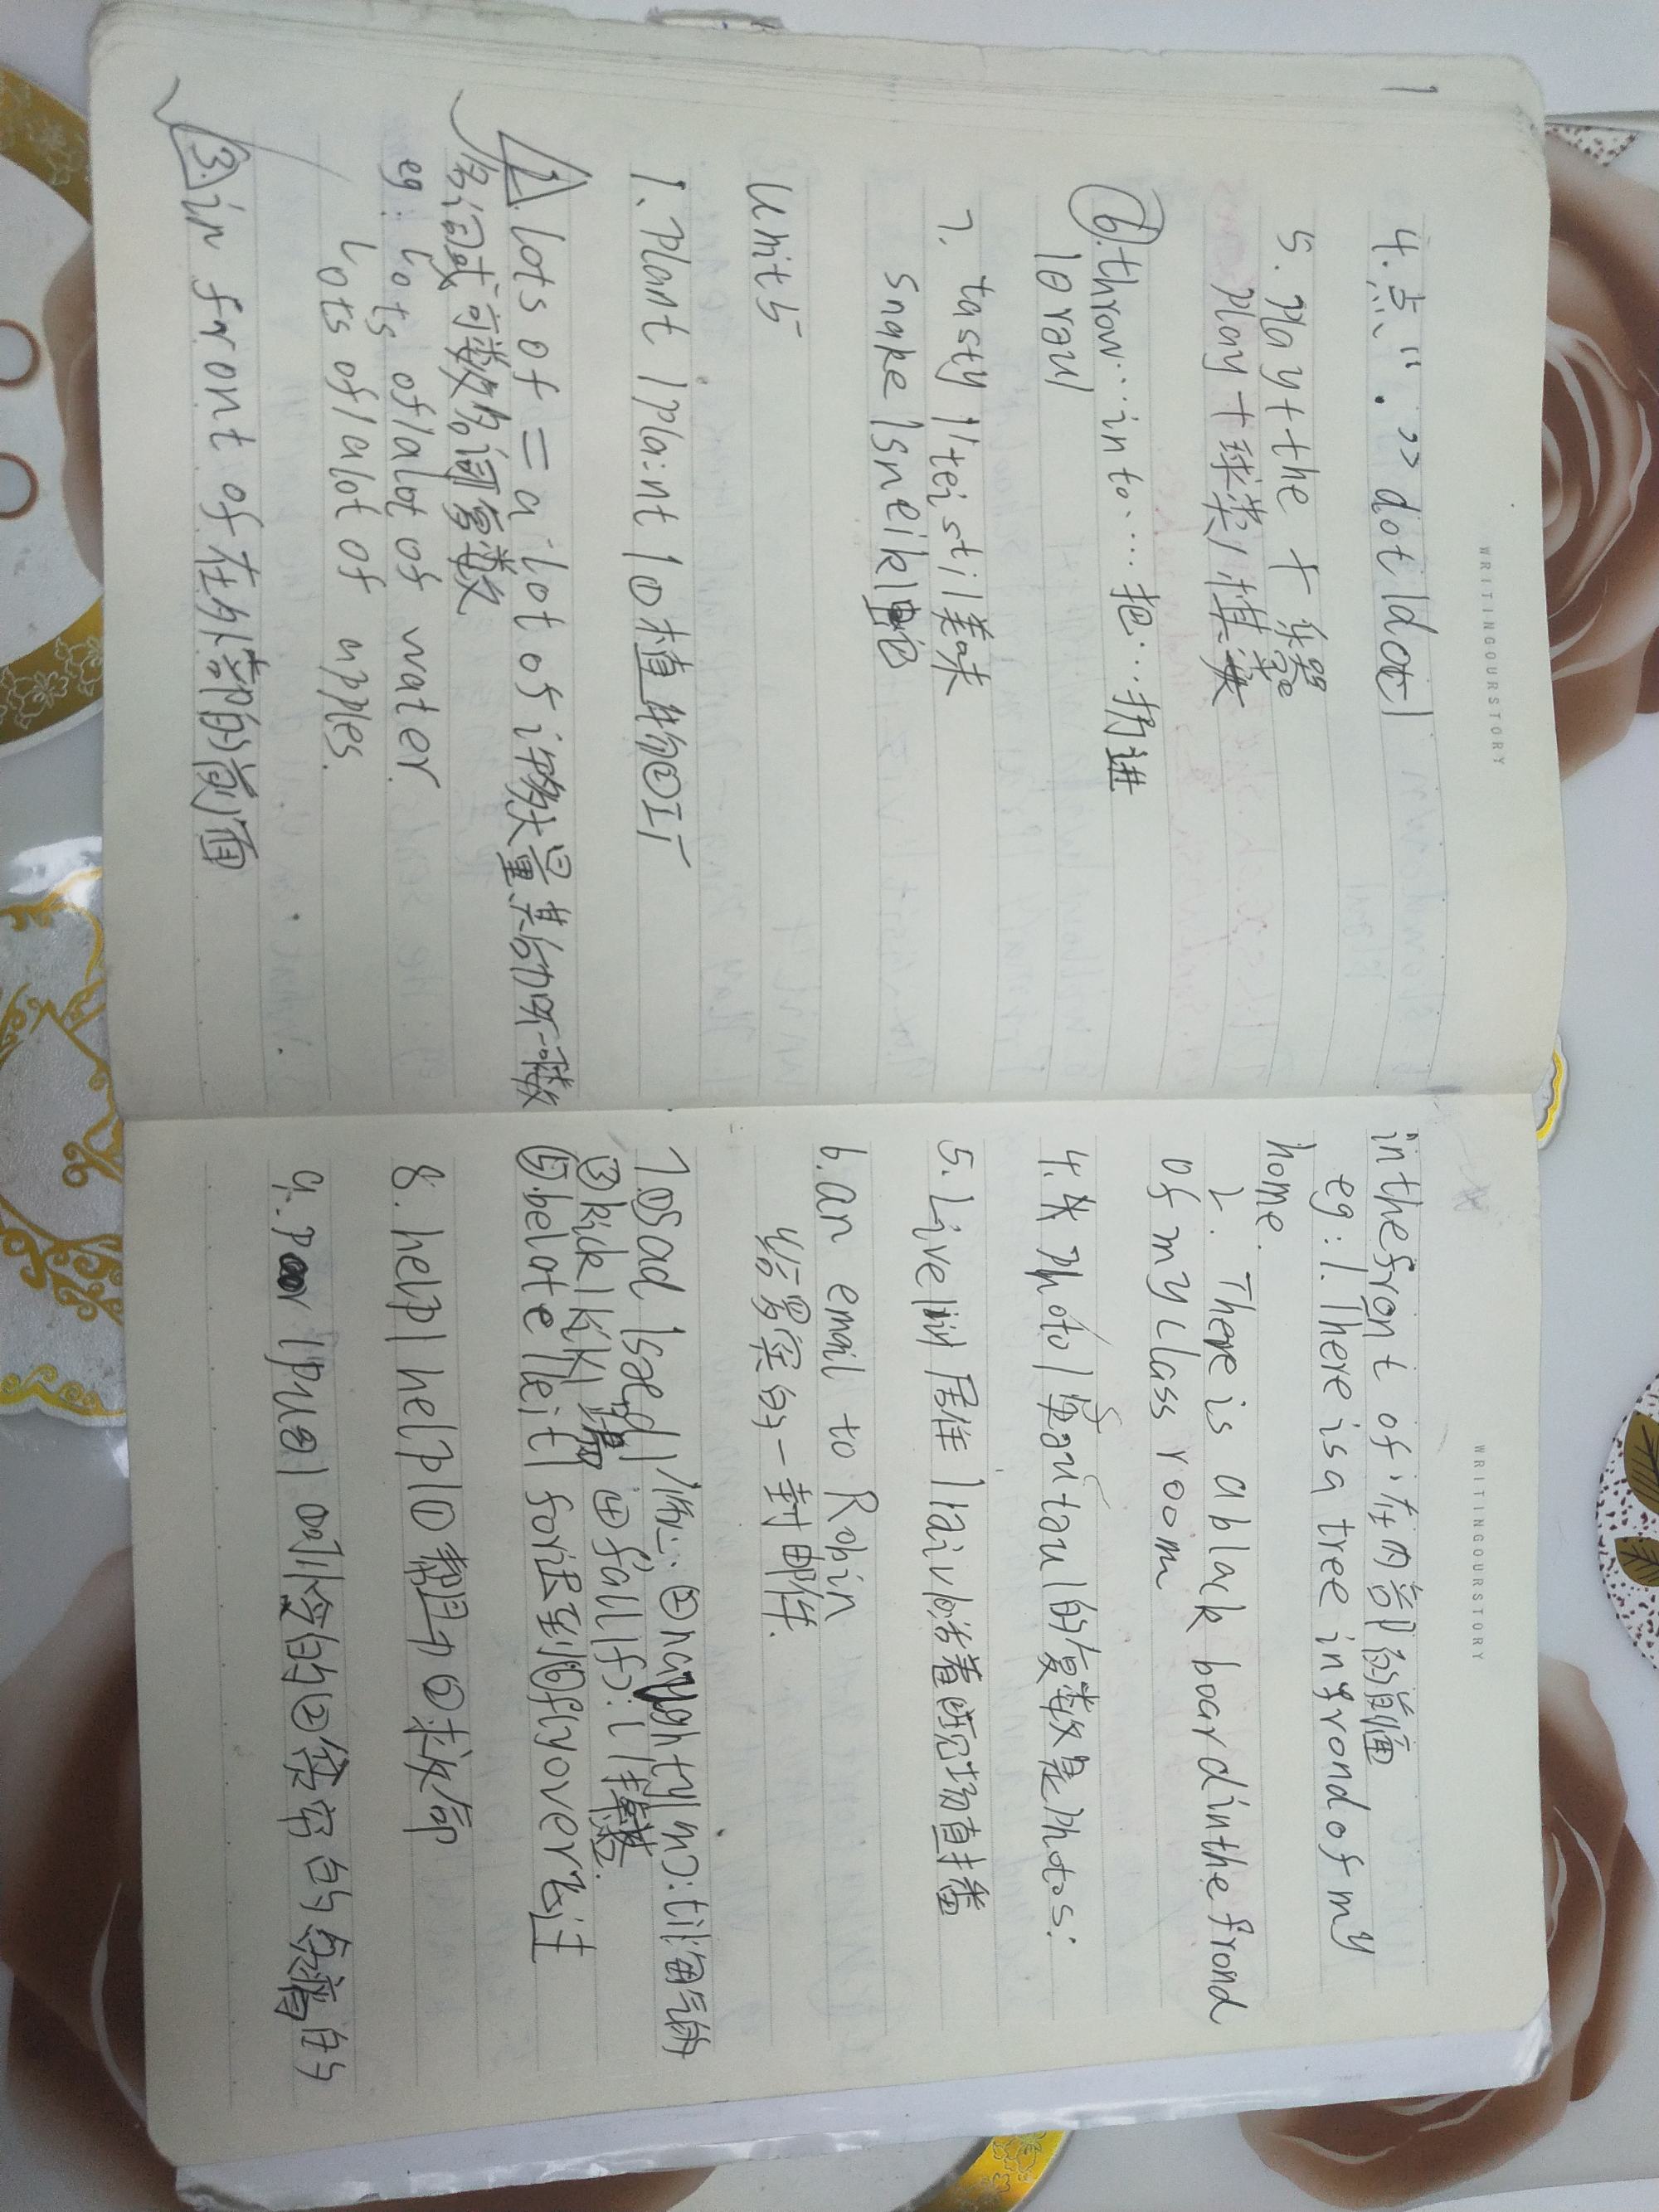 WRITINGOURSTORY
4.点“.”dot|dɒt|
5.play+the+乐器
play+球类/棋类
6.throw…into…把…扔进
|θrəu|
7. tasty|'teisti|美味
snake|sneik|蛇
Unit5
1.plant|pla:nt|①植物②工厂
2.lots of = a lot of 许多大量其后加可数
名词或可数名词复数
eg: Lots of/alot of water.
Lots of/alot of apples.
3.in front of在外部的前面
WRITINGOURSTORY
in thefront of 在内部的前面
eg:1.There isa tree in frondof my
home.
2. There is ablack boardinthefrond
of my class room
4.photo|'fəutəu|的复数是photos:
5.Live|liv|居住|laiv|活着的现场直播
6.an email to Robin
给罗宾的一封邮件.
7.①sad|sæd|伤心②naughty|nɔ:ti|淘气的
③kick|kik|踢④fall|fɔ:l|摔落.
⑤belate|leit|for迟到⑥flyover飞过
8.help|help|①帮助②救命
9.poor|puə|①可怜的②贫穷的